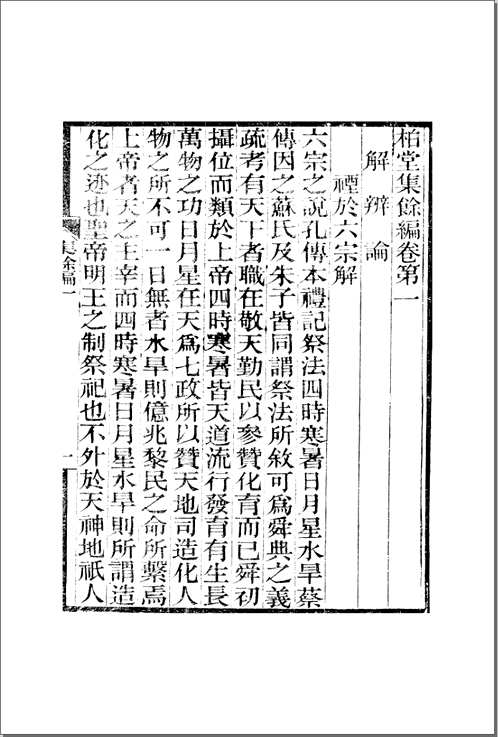 柏堂集餘編卷第一
解辨論
禋於六宗解
六宗之說孔傳本禮記祭法四時寒暑日月星水旱蔡
傳因之蘇氏及朱子皆同謂祭法所敘可爲舜典之義
疏考有天下者職在敬天勤民以參贊化育而已舜初
攝位而類於上帝四時寒暑皆天道流行發育有生長
萬物之功日月星在天爲七政所以贊天地司造化人
物之所不可一日無者水旱則億兆黎民之命所繫焉
上帝者天之主宰而四時寒暑日月星水旱則所謂造
化之迹也聖帝明王之制祭祀也不外於天神地祇人
集餘編一
一